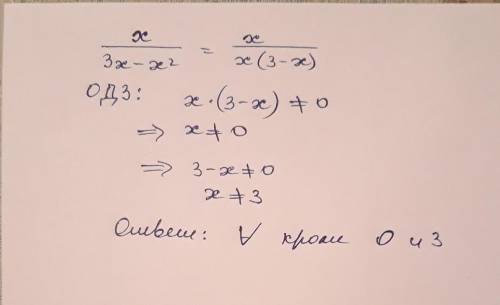 x/(3x-x²) = x/(x(3-x))
ОДЗ: x·(3-x) ≠ 0
⇒ x ≠ 0
⇒ 3-x ≠ 0
x ≠ 3
Ответ: ∀ кроме 0 и 3